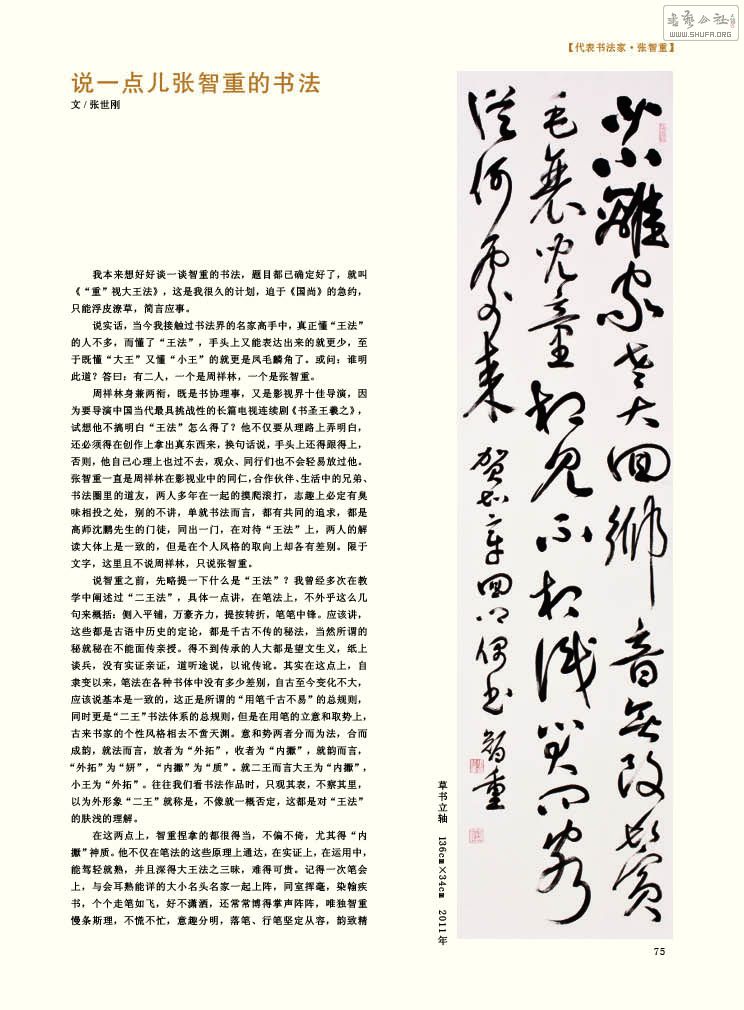 書藝公社
WWW.SHUFA.ORG
【代表书法家·张智重】
说一点儿张智重的书法
文 / 张世刚
我本来想好好谈一谈智重的书法，题目都已确定好了，就叫
《“重”视大王法》，这是我很久的计划，迫于《国尚》的急约，
只能浮皮潦草，简言应事。
说实话，当今我接触过书法界的名家高手中，真正懂“王法”
的人不多，而懂了“王法”，手头上又能表达出来的就更少，至
于既懂“大王”又懂“小王”的就更是凤毛麟角了。或问：谁明
此道？答曰：有二人，一个是周祥林，一个是张智重。
周祥林身兼两衔，既是书协理事，又是影视界十佳导演，因
为要导演中国当代最具挑战性的长篇电视连续剧《书圣王羲之》，
试想他不搞明白“王法”怎么得了？他不仅要从理路上弄明白，
还必须得在创作上拿出真东西来，换句话说，手头上还得跟得上，
否则，他自己心理上也过不去，观众、同行们也不会轻易放过他。
张智重一直是周祥林在影视业中的同仁，合作伙伴、生活中的兄弟、
书法圈里的道友，两人多年在一起的摸爬滚打，志趣上必定有臭
味相投之处，别的不讲，单就书法而言，都有共同的追求，都是
高师沈鹏先生的门徒，同出一门，在对待“王法”上，两人的解
读大体上是一致的，但是在个人风格的取向上却各有差别。限于
文字，这里且不说周祥林，只说张智重。
说智重之前，先略提一下什么是“王法”？我曾经多次在教
学中阐述过“二王法”，具体一点讲，在笔法上，不外乎这么几
句来概括：侧入平铺，万豪齐力，提按转折，笔笔中锋。应该讲，
这些都是古语中历史的定论，都是千古不传的秘法，当然所谓的
秘就秘在不能面传亲授。得不到传承的人大都是望文生义，纸上
谈兵，没有实证亲证，道听途说，以讹传讹。其实在这点上，自
隶变以来，笔法在各种书体中没有多少差别，自古至今变化不大，
应该说基本是一致的，这正是所谓的“用笔千古不易”的总规则，
同时更是“二王”书法体系的总规则，但是在用笔的立意和取势上，
古来书家的个性风格相去不啻天渊。意和势两者分而为法，合而
成韵，就法而言，放者为“外拓”，收者为“内擫”，就韵而言，
“外拓”为“妍”，“内擫”为“质”。就二王而言大王为“内擫”，
小王为“外拓”。往往我们看书法作品时，只观其表，不察其里，
以为外形象“二王”就称是，不像就一概否定，这都是对“王法”
的肤浅的理解。
在这两点上，智重捏拿的都很得当，不偏不倚，尤其得“内
擫”神质。他不仅在笔法的这些原理上通达，在实证上，在运用中，
能驾轻就熟，并且深得大王法之三昧，难得可贵。记得一次笔会
上，与会耳熟能详的大小名头名家一起上阵，同室挥毫，染翰疾
书，个个走笔如飞，好不潇洒，还常常博得掌声阵阵，唯独智重
慢条斯理，不慌不忙，意趣分明，落笔、行笔坚定从容，韵致精
少小離家老大回鄉音無改鬢
毛衰兒童相見不相識笑問客
從何處來
賀知章回鄉偶書 智重
草书立轴 136cm×34cm 2011年
75